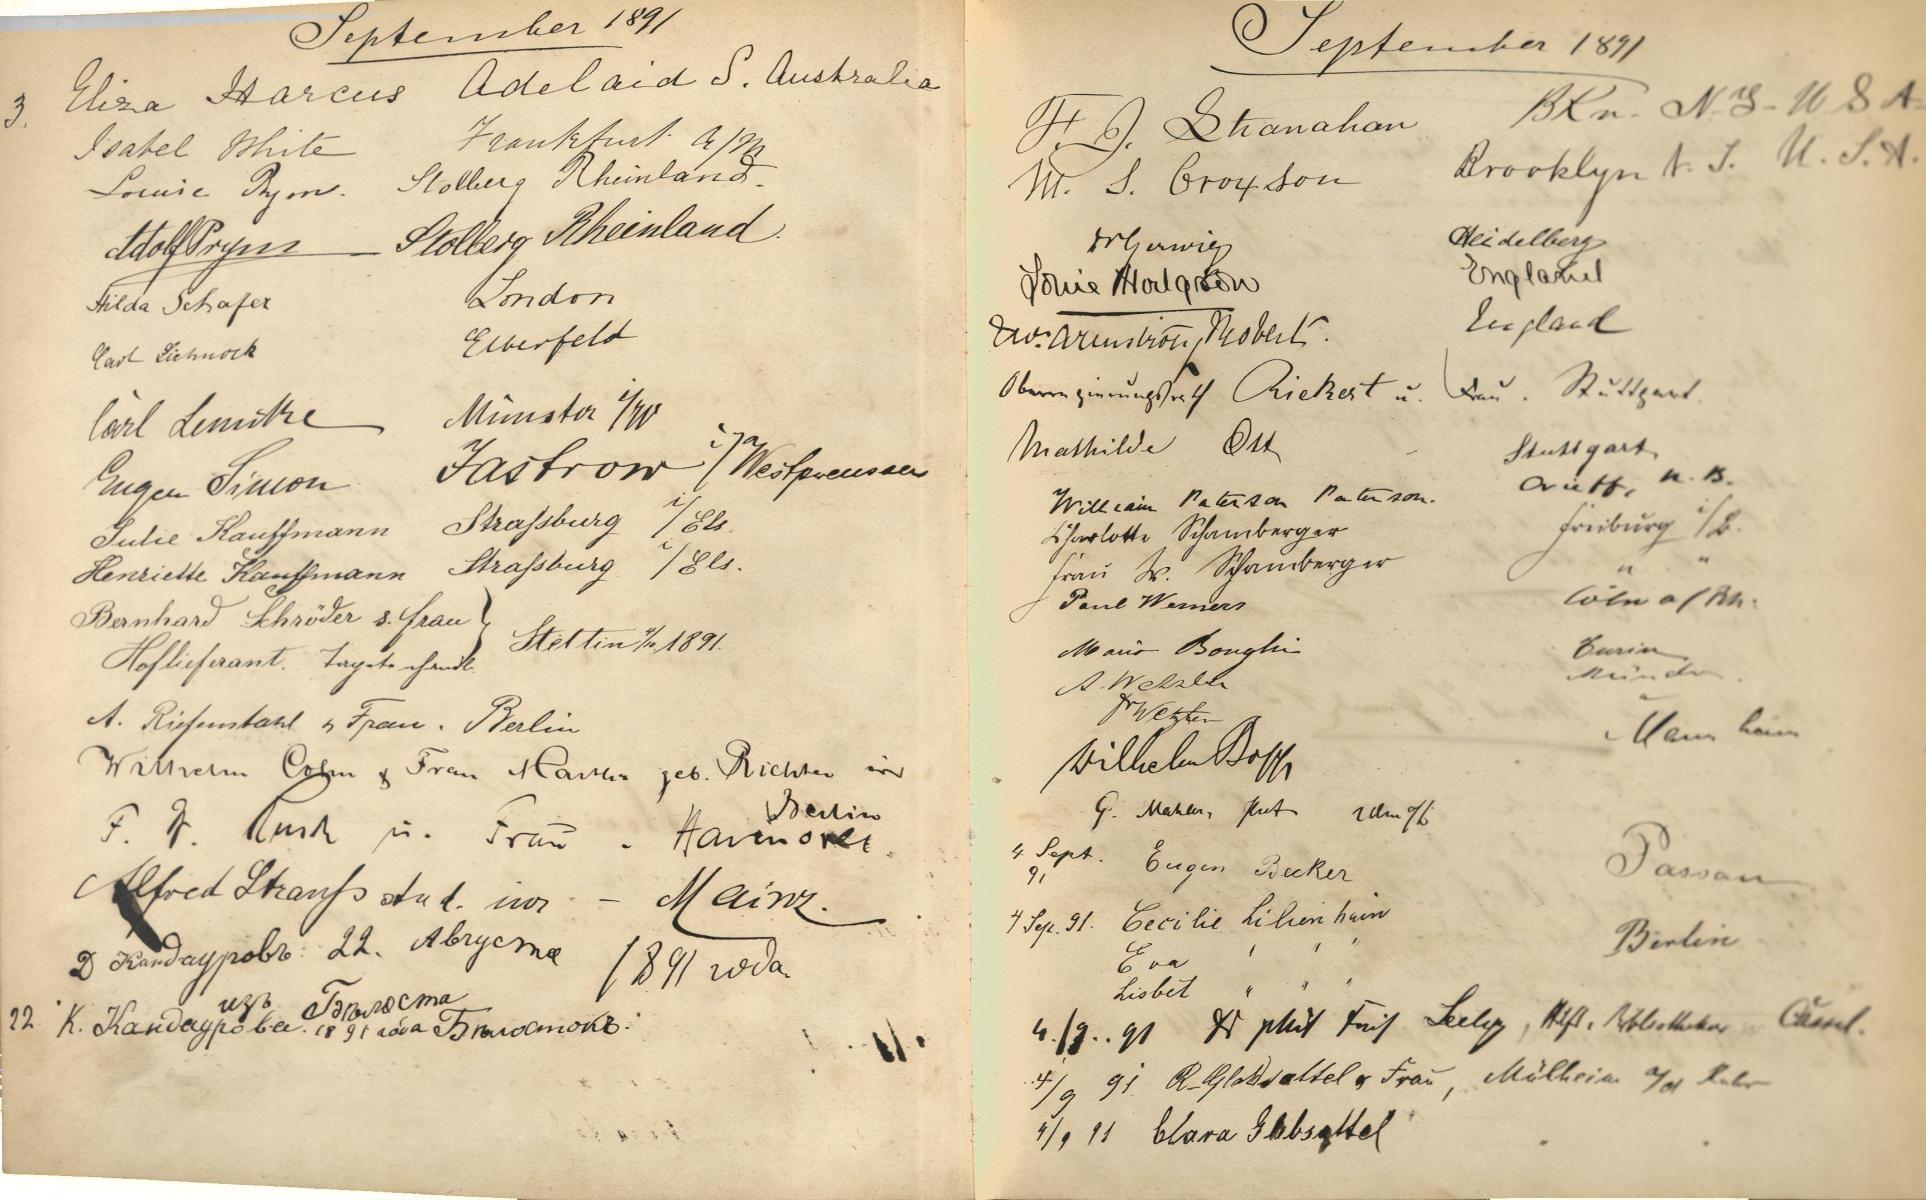 September 1891
3. Eliza Harcus Adelaid S. Australia
Isabel White Frankfurt a/M
Louise Prym. Stolberg Rheinland.
Adolf Prym Stolberg Rheinland.
Hilda Schafer London
Carl Elberfeld
Carl Lemcke Münster i/W
Eugen Simon Jastrow i/ Westpreussen
Julie Kauffmann Straßburg i/Els.
Henriette Kauffmann Straßburg i/Els.
Bernhard Schröder u. Frau
Hoflieferant. Stettin 1891.
A. Riefenstahl u Frau. Berlin
Wilhelm Cohn & Frau Martha geb. Richter
Berlin
F. W. u. Frau - Hannover.
Alfred Strauß stud. iur - Mainz.
Д Кандауровъ 22. Августа 1891 года.
изъ Бѣлостока
22 К. Кандаурова. 1891 года Бѣлостокъ.
September 1891
F. J. Stranahan BKn. N.Y- U S A-
M. S. Croxson Brooklyn N. Y. U. S. A.
Dr Gerwig Heidelberg
Louie Hodgson England
Armstrong Roberts. England
Oberregierungsrath Rickert u. Frau. Stuttgart.
Mathilde Ott Stuttgart.
William Paterson Paterson. Crieff, N.B.
Charlotte Schamberger Freiburg i/B.
Frau W. Schamberger " "
Paul Werners Cöln a/Rh.
Mario Turin
A. Wetzler München.
Dr Wetzler "
Wilhelm Bopp Mannheim
G.
4 Sept. 91 Eugen Becker Passau
4 Sep. 91. Cecilie Lilienhain Berlin
Eva " " "
Lisbet " " "
4./9..91 Dr phil Seelig, Cassel.
4/9 91 R. Glebsattel u Frau, Mülheim a/d Ruhr
4/9 91 Clara Glebsattel